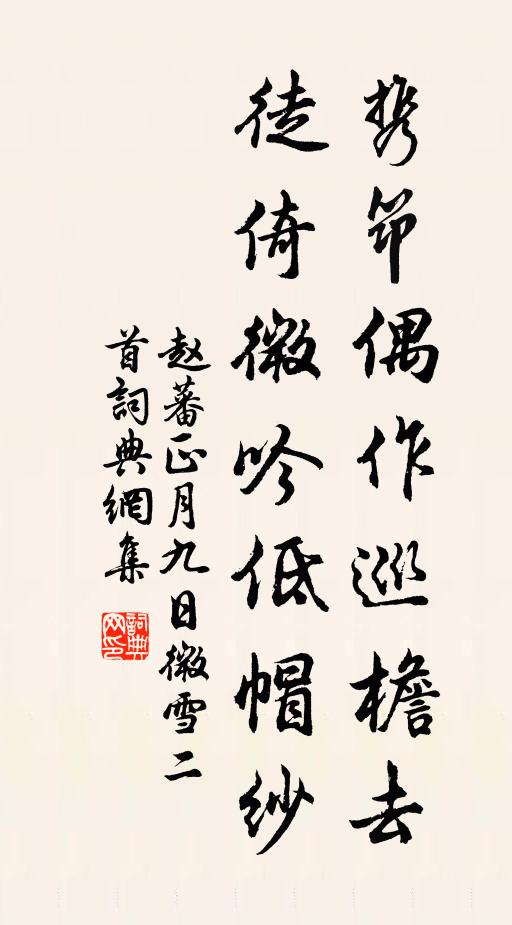 携笻偶作巡檐去
徒倚微吟低帽纱
赵蕃正月九日微雪二
首詞典網集
詞典
网印